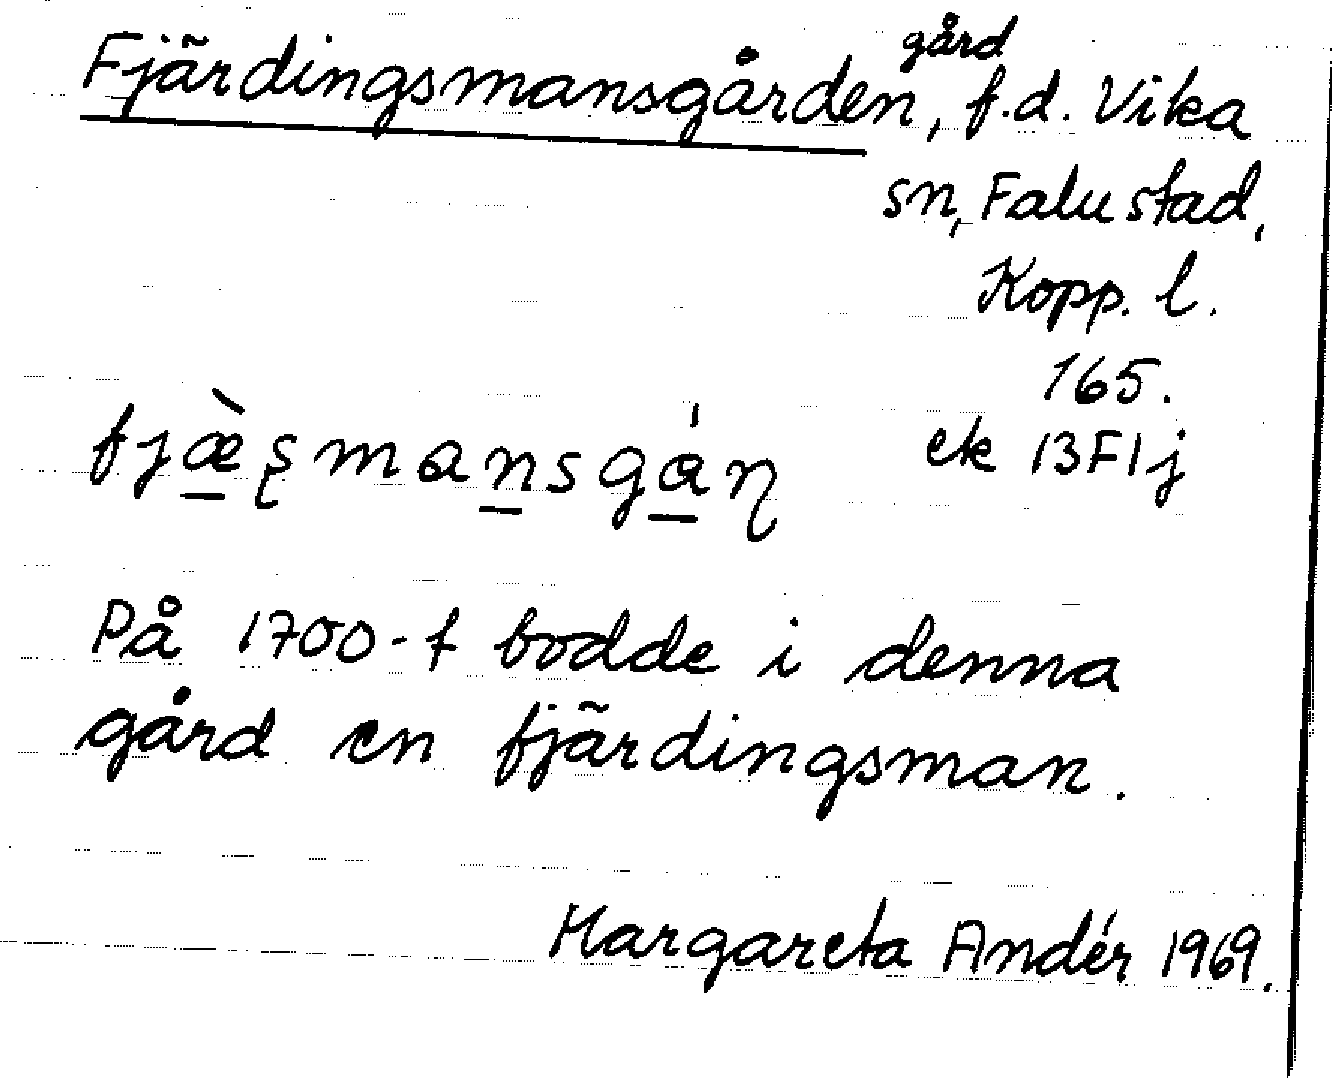 Fjärdingsmansgården, gård f.d. Vika
sn, Falu stad,
Kopp. l.
165.
fjæ̠̀ʂman̠sgá̠ɳ ek 13F1j
På 1700-t bodde i denna
gård en fjärdingsman.
Margareta Andér 1969.